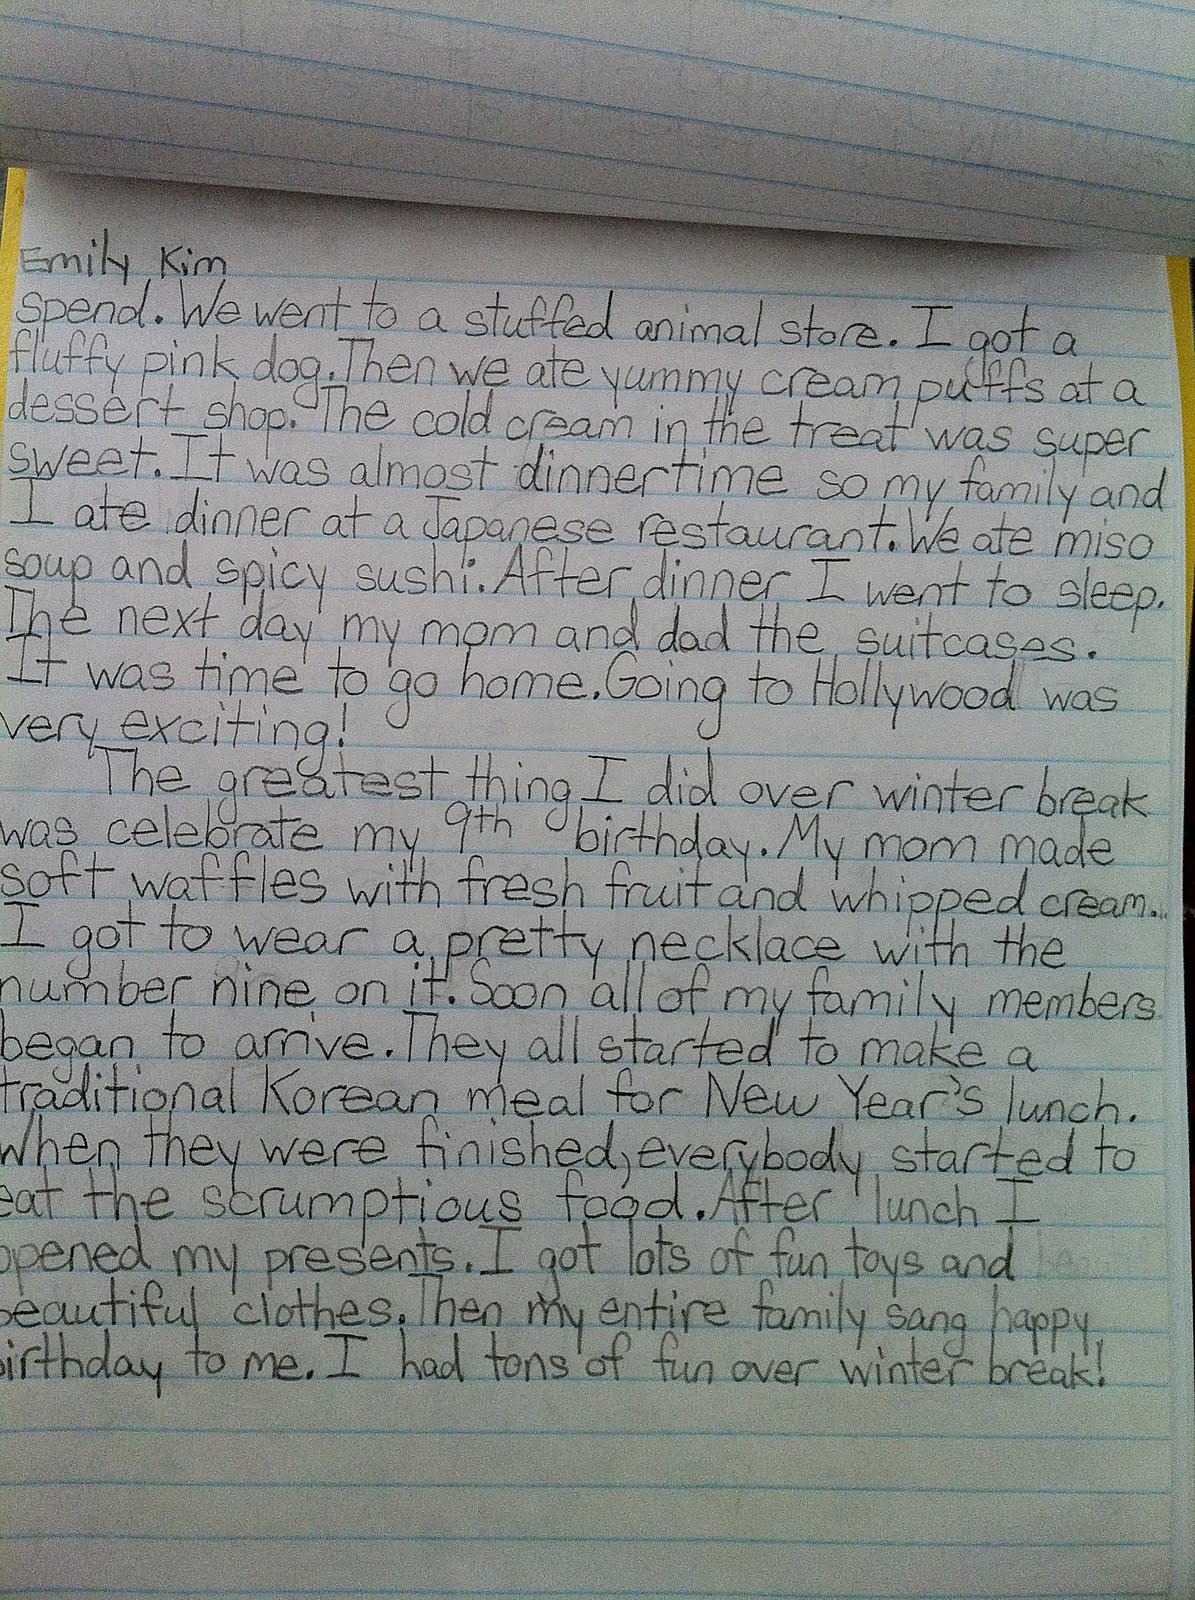 Emily Kim
spend. We went to a stuffed animal store. I got a
fluffy pink dog. Then we ate yummy cream puffs at a
dessert shop. The cold cream in the treat was super
sweet. It was almost dinnertime so my family and
I ate dinner at a Japanese restaurant. We ate miso
soup and spicy sushi. After dinner I went to sleep.
The next day my mom and dad the suitcases.
It was time to go home. Going to Hollywood was
very exciting!
The greatest thing I did over winter break
was celebrate my 9th birthday. My mom made
soft waffles with fresh fruit and whipped cream.
I got to wear a pretty necklace with the
number nine on it. Soon all of my family members
began to arrive. They all started to make a
traditional Korean meal for New Year's lunch.
When they were finished, everybody started to
eat the scrumptious food. After lunch I
opened my presents. I got lots of fun toys and
beautiful clothes. Then my entire family sang happy
birthday to me. I had tons of fun over winter break!